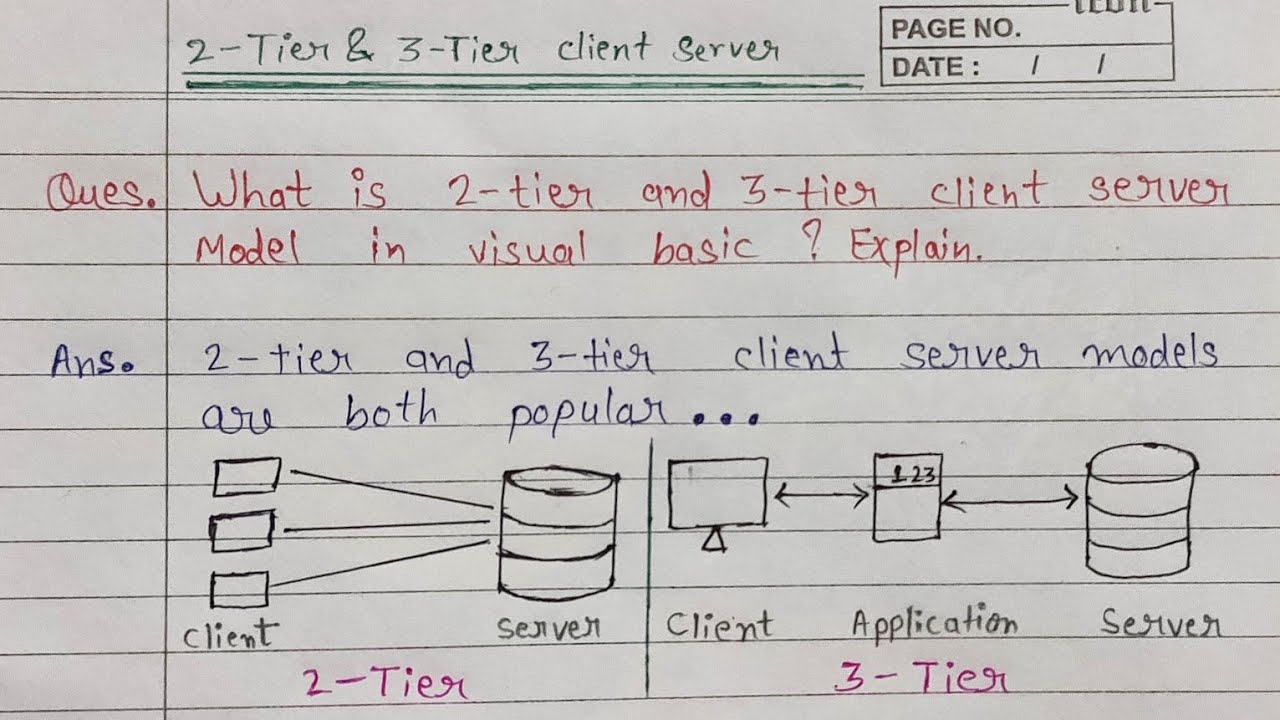 2-Tier & 3-Tier client server
PAGE NO.
DATE : / /
Ques. What is 2-tier and 3-tier client server
Model in visual basic ? Explain.
Ans. 2-tier and 3-tier client server models
are both popular...
123
Client Server Client Application Server
2-Tier 3-Tier